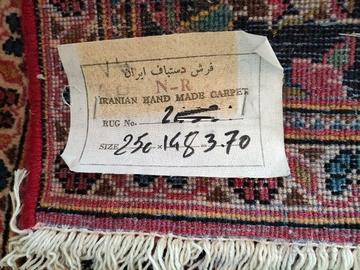 فرش دستباف ایران
N-R
IRANIAN HAND MADE CARPET
RUG No.
SIZE 250 × 148 = 3.70